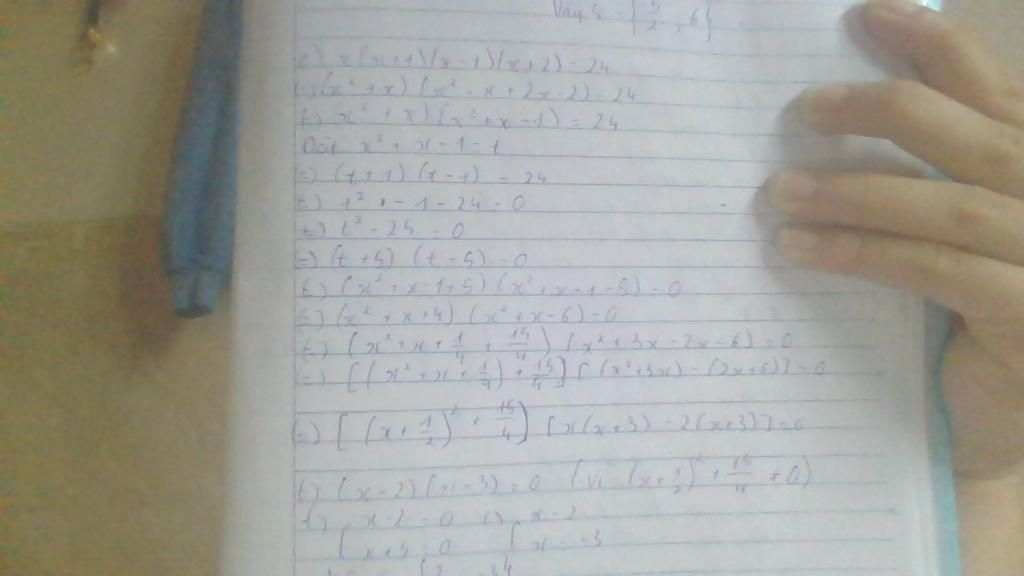 Vậy S = {5/2, 6}
c) x(x+1)(x-1)(x+2) = 24
(=) (x² + x) (x² - x + 2x - 2) = 24
(=) (x² + x) (x² + x - 1) = 24
Đặt x² + x - 1 = t
(=) (t + 1) (t - 1) = 24
(=) t² - 1 - 24 = 0
(=) t² - 25 = 0
(=) (t + 5) (t - 5) = 0
(=) (x² + x - 1 + 5) (x² + x - 1 - 5) = 0
(=) (x² + x + 4) (x² + x - 6) = 0
(=) (x² + x + 1/4 + 15/4) (x² + 3x - 2x - 6) = 0
(=) [(x² + x + 1/4) + 15/4] [(x² + 3x) - (2x + 6)] = 0
(=) [(x + 1/2)² + 15/4] [x(x + 3) - 2(x + 3)] = 0
(=) (x - 2) (x - 3) = 0 (Vì (x + 1/2)² + 15/4 ≠ 0)
(=) [x - 2 = 0 (=) [x = 2
x + 3 = 0 x = -3